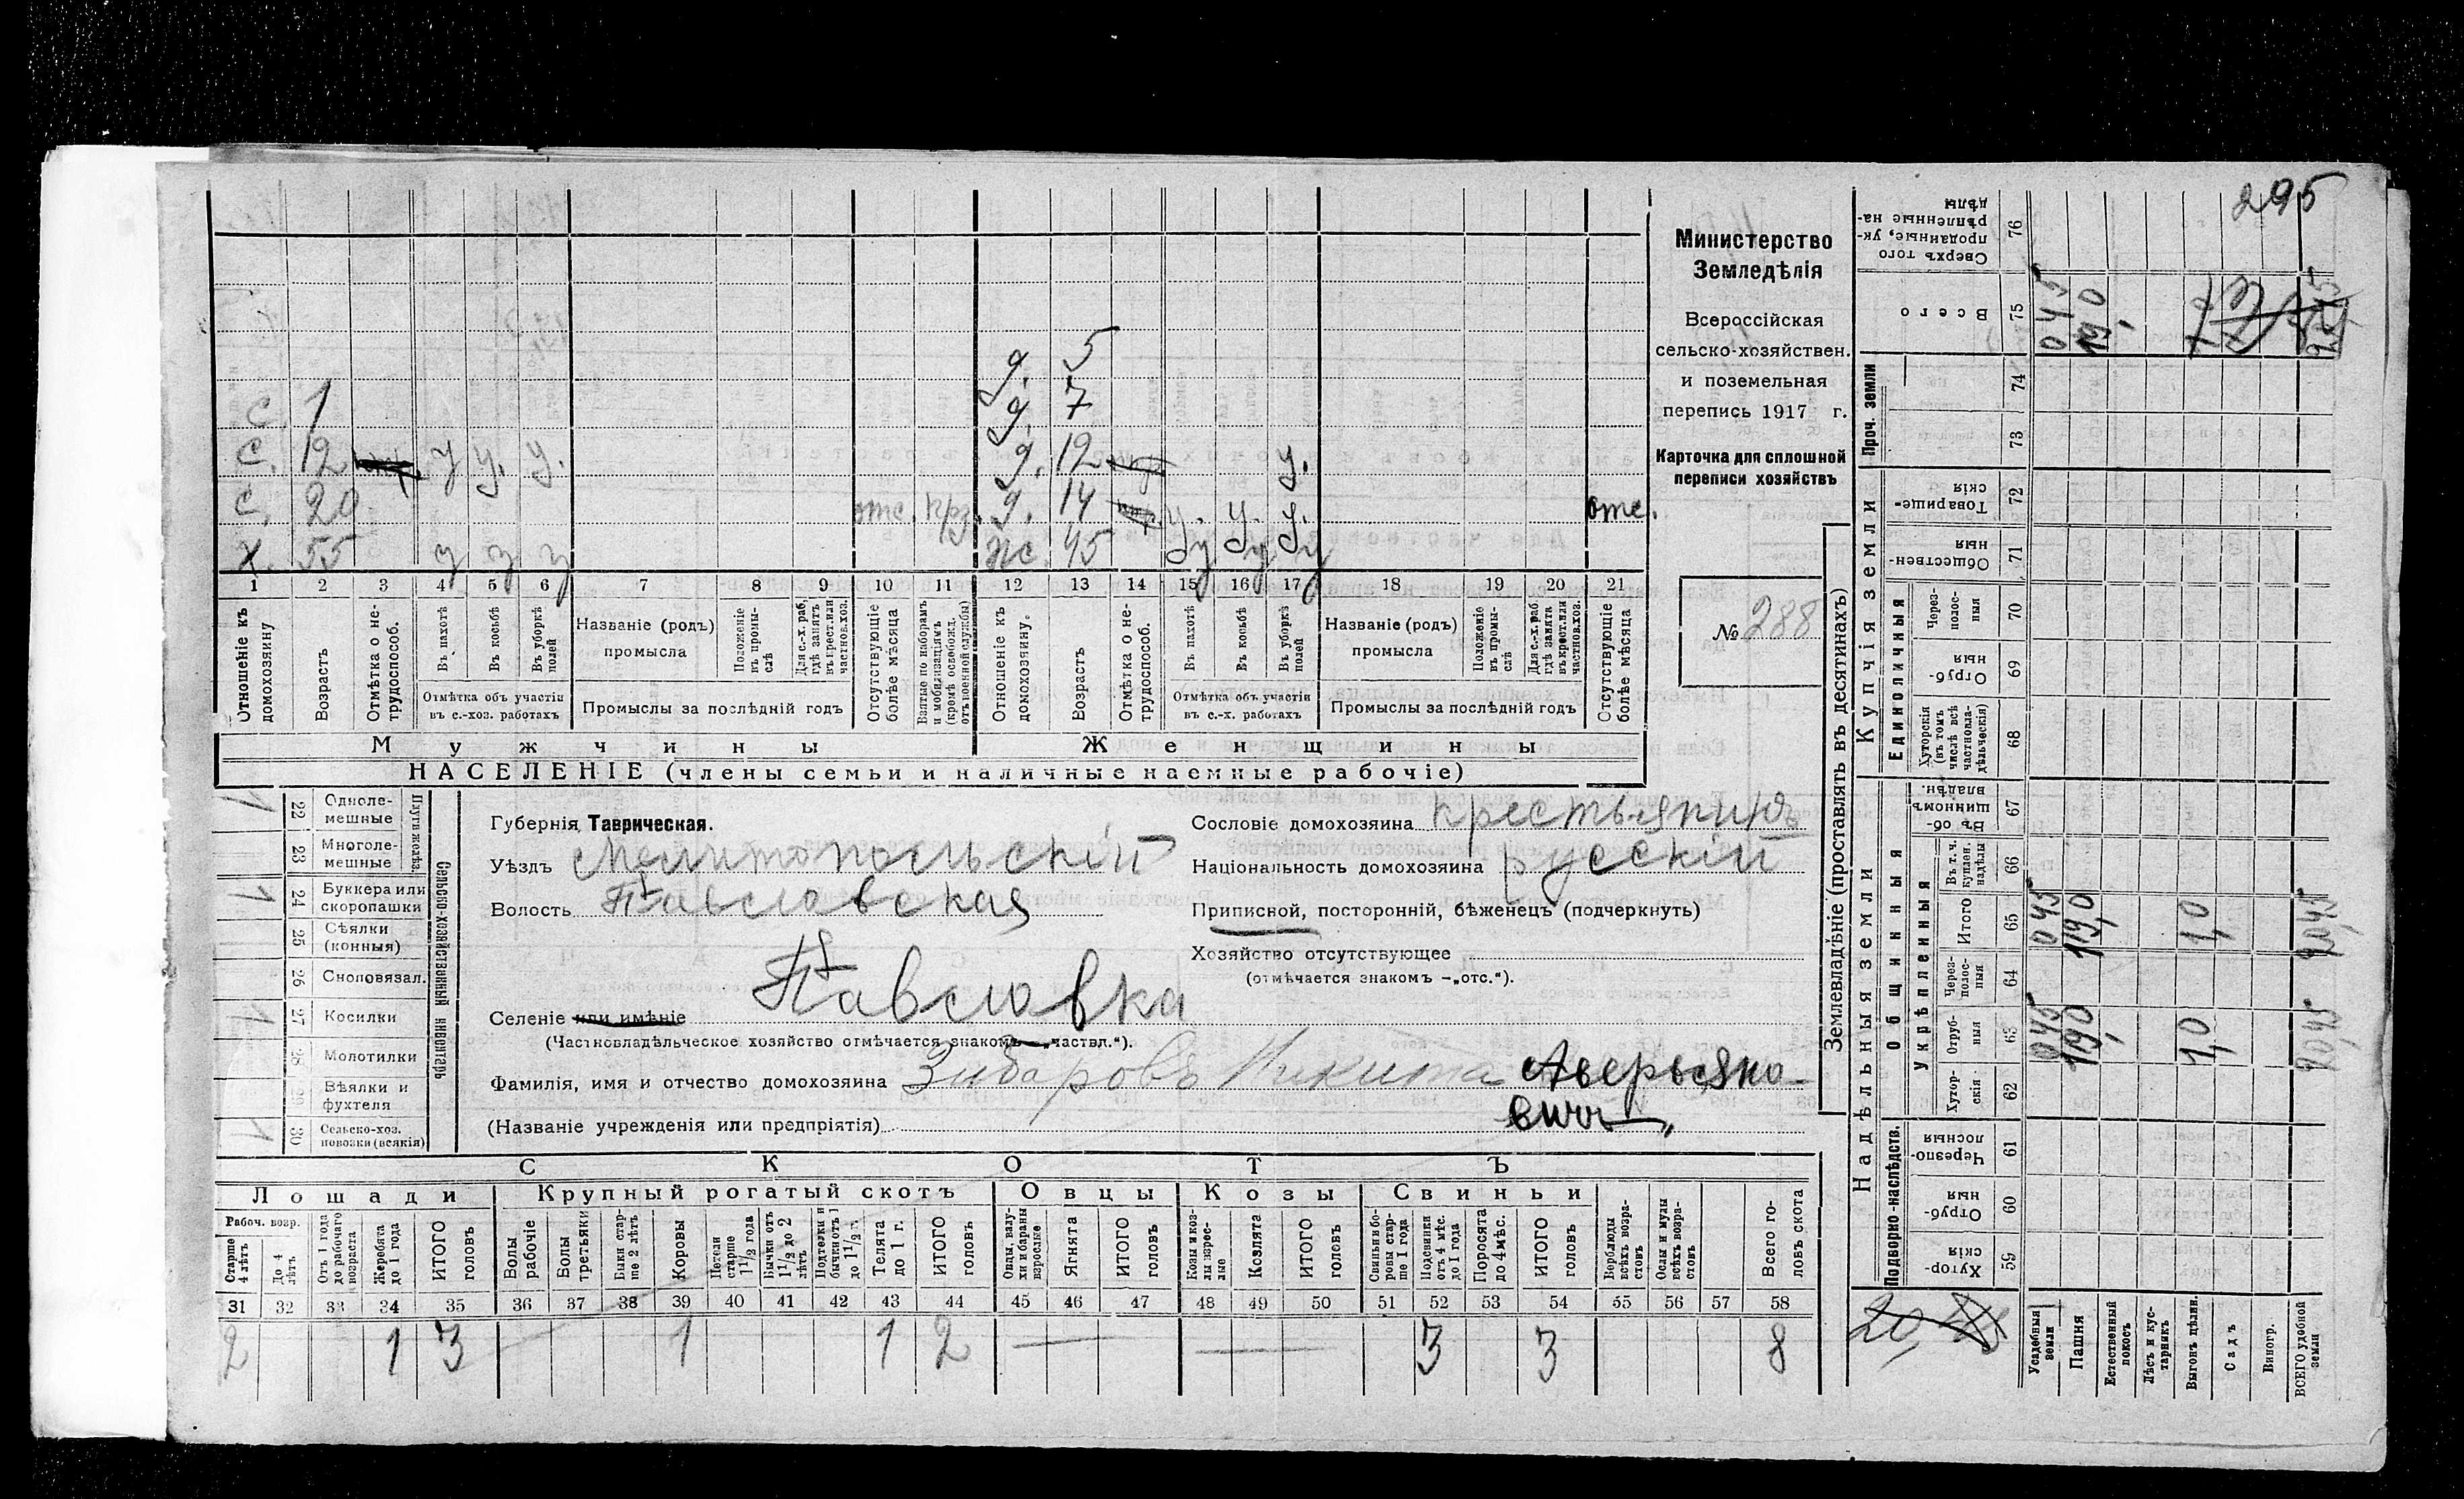 295
Министерство
Земледѣлія
Всероссійская
сельско-хозяйствен.
и поземельная
перепись 1917 г.
Карточка для сплошной
переписи хозяйствъ
№ 288
д. 5
с. 1 д. 7
с. 12 у у. у. д. 12 у.
с. 20 отс. д. 14 у. у. у. отс.
х. 55 у у у ж. 45 у у у
1 2 3 4 5 6 7 8 9 10 11 12 13 14 15 16 17 18 19 20 21
Отношеніе къ домохозяину
Возрастъ
Отмѣтка о не-трудоспособ.
Въ пахотѣ
Въ косьбѣ
Въ уборкѣ полей
Отмѣтка объ участіи въ с.-хоз. работахъ
Названіе (родъ) промысла
Положеніе въ промы-слѣ
Для с.-х. раб. гдѣ занятъ въ крест. или частнов. хоз.
Промыслы за послѣдній годъ
Отсутствующіе болѣе мѣсяца
Взятые по наборамъ и мобилизаціямъ (кромѣ освобожд. отъ военной службы)
Отношеніе къ домохозяину.
Возрастъ
Отмѣтка о не-трудоспособ.
Въ пахотѣ
Въ косьбѣ
Въ уборкѣ полей
Отмѣтка объ участіи въ с.-х. работахъ
Названіе (родъ) промысла
Положеніе въ промы-слѣ
Для с.-х. раб. гдѣ занята въ крест. или частнов. хоз.
Промыслы за послѣдній годъ
Отсутствующіе болѣе мѣсяца
Мужчины Женщины
НАСЕЛЕНІЕ (члены семьи и наличные наемные рабочіе)
Сельско-хозяйственный инвентарь
Плуги желѣз.
1 22 Одноле-мешные
23 Многоле-мешные
1 24 Буккера или скоропашки
25 Сѣялки (конныя)
26 Сноповязал.
1 27 Косилки
28 Молотилки
29 Вѣялки и фухтеля
1 30 Сельско-хоз. повозки (всякія)
Губернія Таврическая.
Уѣздъ Мелитопольскій
Волость Павловская
Селеніе или имѣніе Павловка
(Частновладѣльческое хозяйство отмѣчается знакомъ—„частвл.“).
Фамилія, имя и отчество домохозяина Зибаровъ Никита Аверьяно-
вич
(Названіе учрежденія или предпріятія)
Сословіе домохозяина крестьянинъ
Національность домохозяина русскій
Приписной, посторонній, бѣженецъ (подчеркнуть)
Хозяйство отсутствующее
(отмѣчается знакомъ —„отс.“).
СКОТЪ
Лошади Крупный рогатый скотъ Овцы Козы Свиньи
Рабоч. возр.
Старше 4 лѣтъ
До 4 лѣтъ
Отъ 1 года до рабочаго возраста
Жеребята до 1 года
ИТОГО головъ
Волы рабочіе
Волы третьяки
Быки стар-ше 2 лѣтъ
Коровы
Нетели старше 1 1/2 года
Бычки отъ 1 1/2 до 2 лѣтъ
Подтелки и бычки отъ 1 до 1 1/2 л.
Телята до 1 г.
ИТОГО головъ
Овцы, валу-хи и бараны взрослые
Ягнята
ИТОГО головъ
Козы и коз-лы взрос-лые
Козлята
ИТОГО головъ
Свиньи и бо-ровы стар-ше 1 года
Подсвинки отъ 4 мѣс. до 1 года
Поросята до 4 мѣс.
ИТОГО головъ
Верблюды всѣхъ возра-стовъ
Ослы и мулы всѣхъ возра-стовъ
Всего го-ловъ скота
31 32 33 34 35 36 37 38 39 40 41 42 43 44 45 46 47 48 49 50 51 52 53 54 55 56 57 58
2 1 3 — 1 1 2 — — 3 3 8
Землевладѣніе (проставлять въ десятинахъ)
Надѣльныя земли Купчія земли Проч. земли
Подворно-наслѣдств.
Общинныя
Укрѣпленныя
Единоличныя
Хутор-скія 59
Отруб-ныя 60
Черезпо-лосныя 61
Хутор-скія 62
Отруб-ныя 63
Через-полос-ныя 64
Итого 65
Въ т. ч. куплен. надѣлы 66
Въ об-щинномъ владѣн. 67
Хуторскія (въ томъ числѣ всѣ частновла-дѣльческія) 68
Отруб-ныя 69
Через-полос-ныя 70
Обществен-ныя 71
Товарище-скія 72
73
74
Всего 75
Сверхъ того проданные, ук-рѣпленные на-дѣлы 76
Усадебныя земли
Пашня
Естественный покосъ
Лѣсъ и кус-тарникъ
Выгонъ дѣлян.
Садъ
Виногр.
ВСЕГО удобной земли
045 19,0 1,0 20,45
045 19,0 1,0 20,45
045 19,0